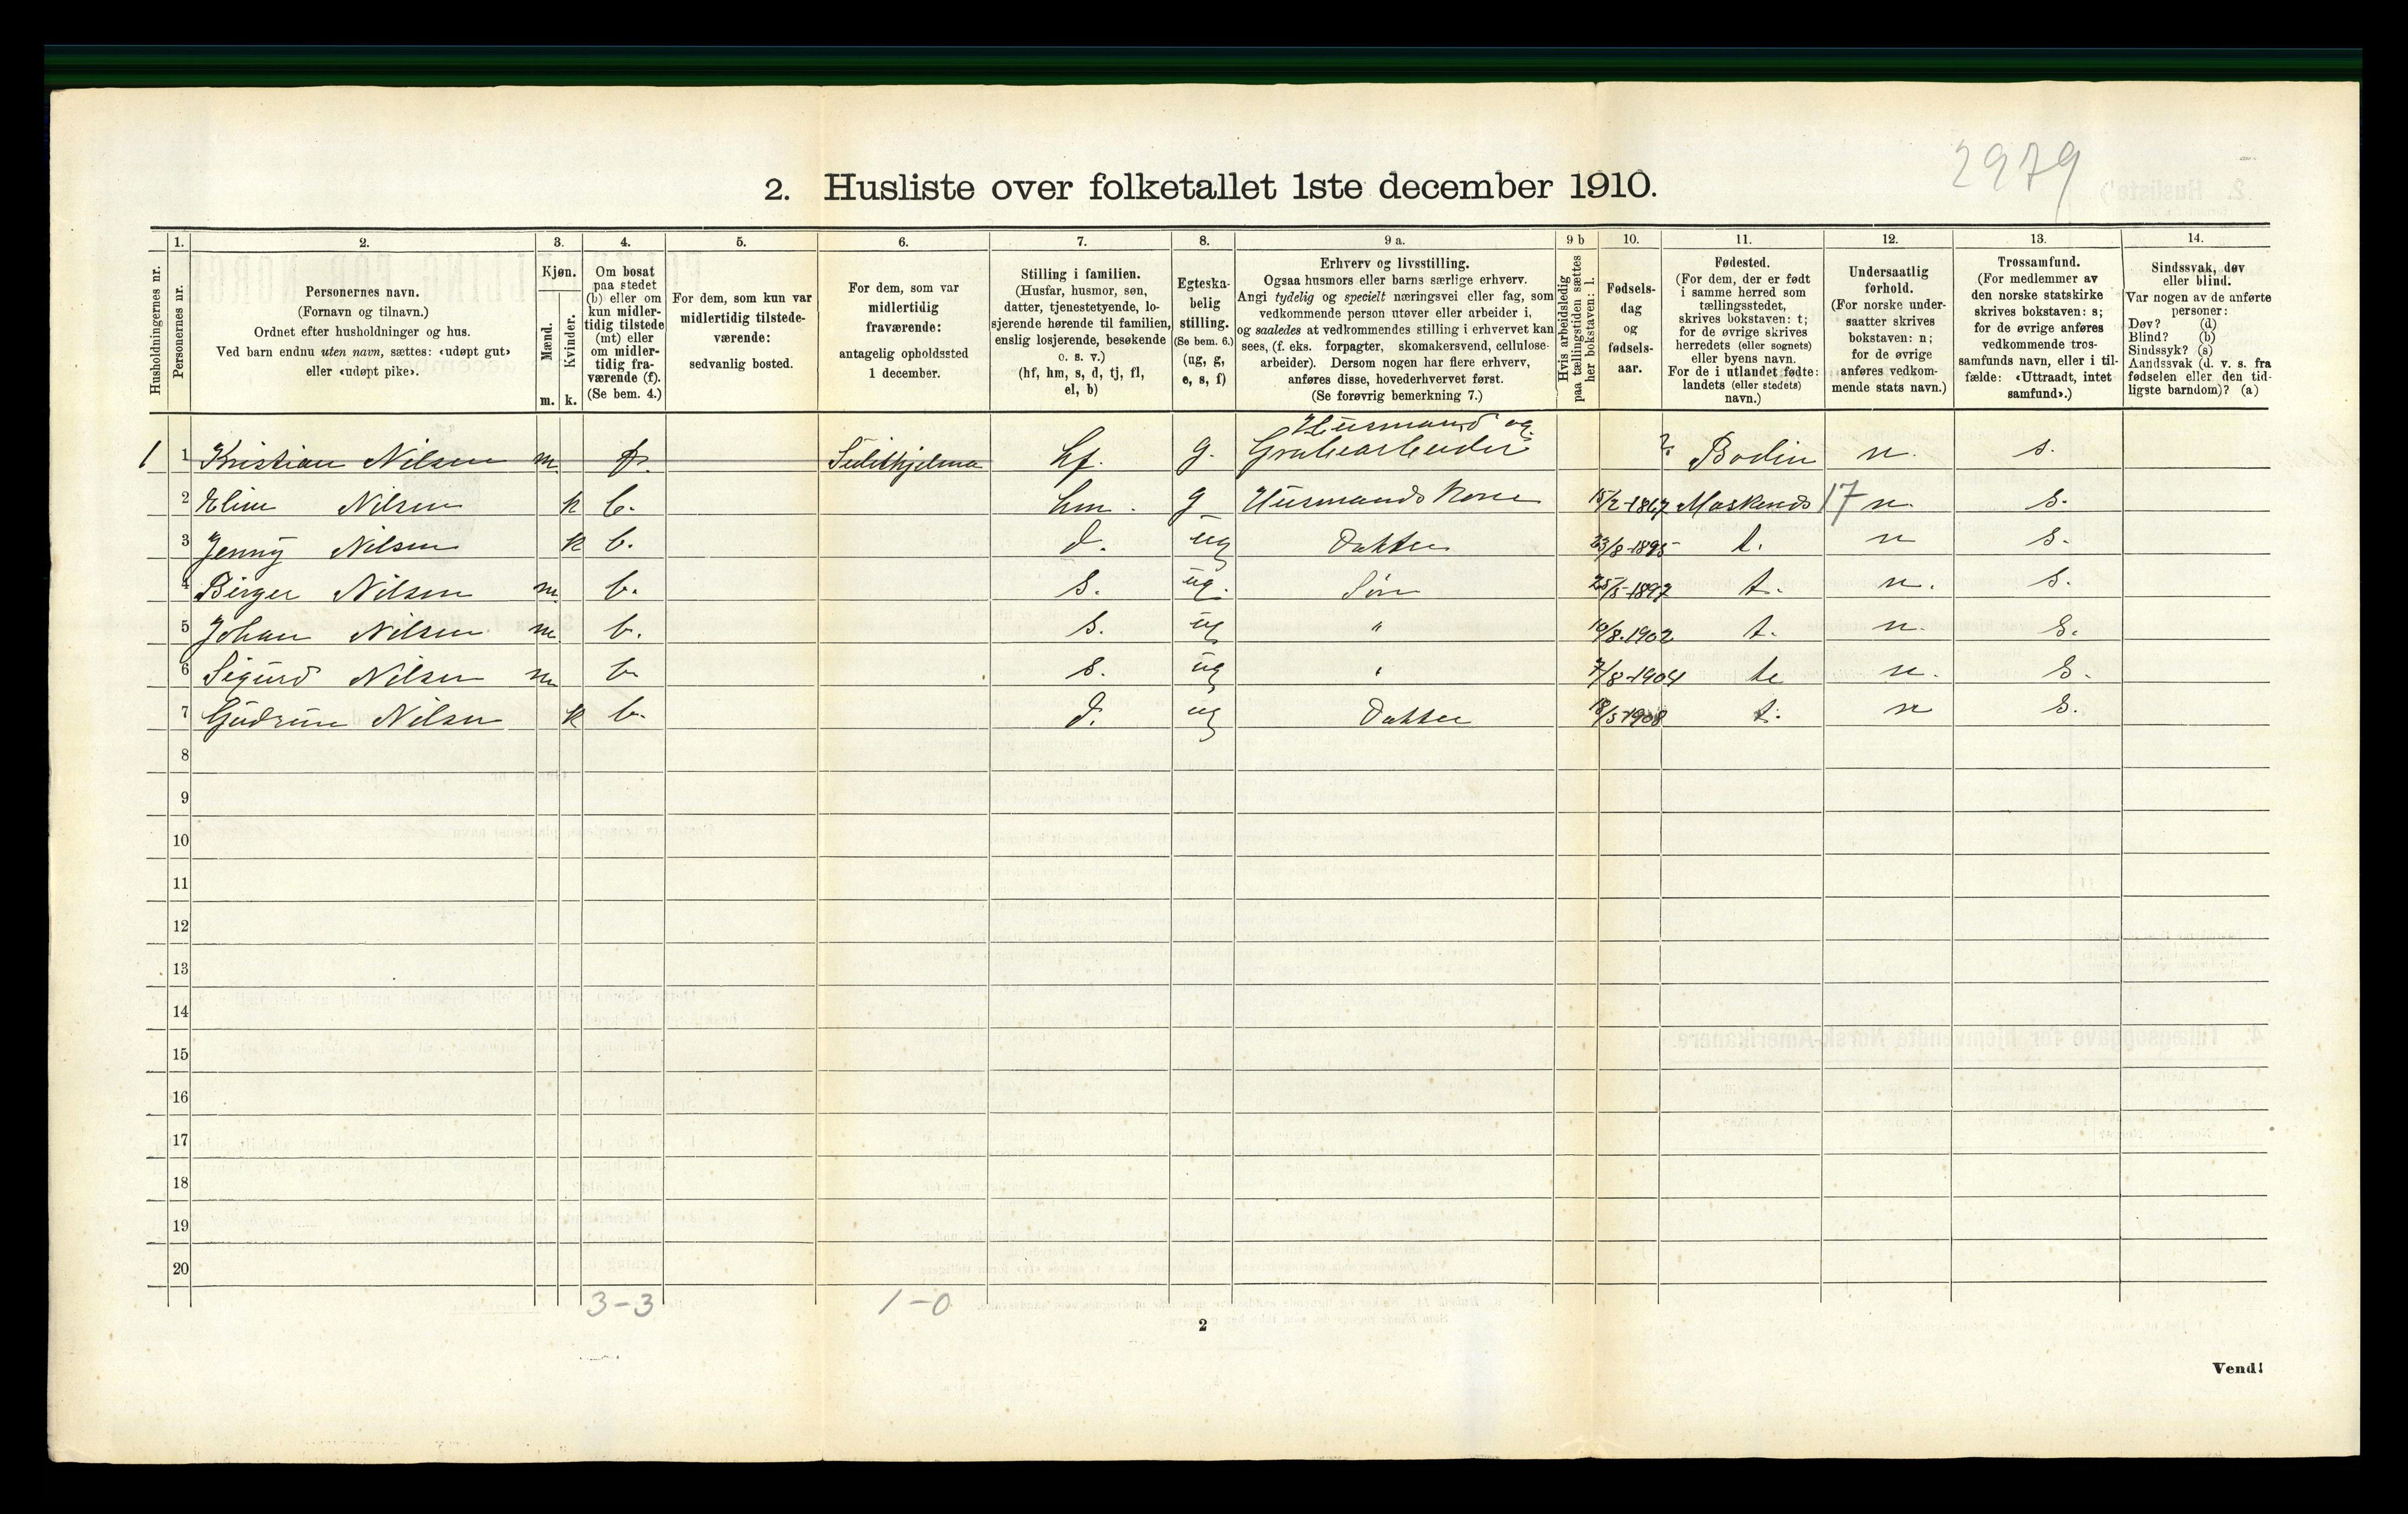 2979
2. Husliste over folketallet 1ste december 1910.
Husholdningernes nr.
1.
Personernes nr.
2.
Personernes navn.
(Fornavn og tilnavn.)
Ordnet efter husholdninger og hus.
Ved barn endnu uten navn, sættes: «udøpt gut»
eller «udøpt pike».
3.
Kjøn.
Mænd.
Kvinder.
m. k.
4.
Om bosat
paa stedet
(b) eller om
kun midler-
tidig tilstede
(mt) eller
om midler-
tidig fra-
værende (f).
(Se bem. 4.)
5.
For dem, som kun var
midlertidig tilstede-
værende:
sedvanlig bosted.
6.
For dem, som var
midlertidig
fraværende:
antagelig opholdssted
1 december.
7.
Stilling i familien.
(Husfar, husmor, søn,
datter, tjenestetyende, lo-
sjerende hørende til familien,
enslig losjerende, besøkende
o. s. v.)
(hf, hm, s, d, tj, fl,
el, b)
8.
Egteska-
belig
stilling.
(Se bem. 6.)
(ug, g,
e, s, f)
9 a.
Erhverv og livsstilling.
Ogsaa husmors eller barns særlige erhverv.
Angi tydelig og specielt næringsvei eller fag, som
vedkommende person utøver eller arbeider i,
og saaledes at vedkommendes stilling i erhvervet kan
sees, (f. eks. forpagter, skomakersvend, cellulose-
arbeider). Dersom nogen har flere erhverv,
anføres disse, hovederhvervet først.
(Se forøvrig bemerkning 7.)
9 b
Hvis arbeidsledig
paa tællingstiden sættes
her bokstaven: l.
10.
Fødsels-
dag
og
fødsels-
aar.
11.
Fødested.
(For dem, der er født
i samme herred som
tællingsstedet,
skrives bokstaven: t;
for de øvrige skrives
herredets (eller sognets)
eller byens navn.
For de i utlandet fødte:
landets (eller stedets)
navn.)
12.
Undersaatlig
forhold.
(For norske under-
saatter skrives
bokstaven: n;
for de øvrige
anføres vedkom-
mende stats navn.)
13.
Trossamfund.
(For medlemmer av
den norske statskirke
skrives bokstaven: s;
for de øvrige anføres
vedkommende tros-
samfunds navn, eller i til-
fælde: «Uttraadt, intet
samfund».)
14.
Sindssvak, døv
eller blind.
Var nogen av de anførte
personer:
Døv? (d)
Blind? (b)
Sindssyk? (s)
Aandssvak (d. v. s. fra
fødselen eller den tid-
ligste barndom)? (a)
1 1 Kristian Nilsen m. f. Sulithjelma hf. g. Husmand og Grubearbeider ? Bodin n. s.
2 Eline Nilsen k b. hm. g Husmands kone 15/2-1867 17 n. s.
3 Jenny Nilsen k b. d. ug Datter 23/8-1895 t. n s.
4 Birger Nilsen m. b. s. ug. Søn 25/5-1897 t. n. s.
5 Johan Nilsen m b. s. ug " 10/8.1902 t. n. s.
6 Sigurd Nilsen m b. s. ug " 7/8-1904 n. s.
7 Gudrun Nilsen k b. d. ug Datter 18/5 1908 t. n s.
8
9
10
11
12
13
14
15
16
17
18
19
20
3-3 1-0
2
Vend!